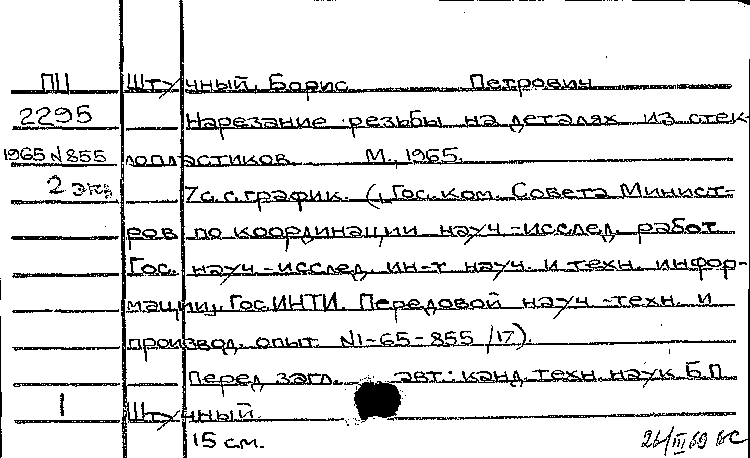 ПЦ Штучный, Борис Петрович
2295 Нарезание резьбы на деталях из стек-
1965 N 855 лопластиков. М., 1965.
2 экз. 7 с. с график. (Гос. ком. Совета Минист-
ров по координации науч.-исслед. работ
Гос. науч.-исслед. ин-т науч. и техн. инфор-
мации, ГосИНТИ. Передовой науч.-техн. и
производ. опыт. N1-65-855/17).
Перед загл. авт.: канд. техн. наук Б.П.
1 Штучный.
15 см.